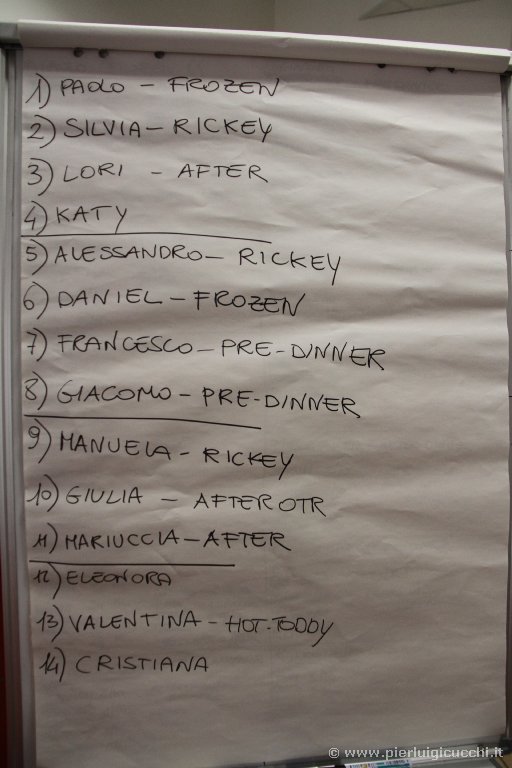 1) PAOLO - FROZEN
2) SILVIA - RICKEY
3) LORI - AFTER
4) KATY
5) ALESSANDRO - RICKEY
6) DANIEL - FROZEN
7) FRANCESCO - PRE-DINNER
8) GIACOMO - PRE-DINNER
9) MANUELA - RICKEY
10) GIULIA - AFTER OTR
11) MARIUCCIA - AFTER
12) ELEONORA
13) VALENTINA - HOT-TODDY
14) CRISTIANA
© www.pierluigicucchi.it